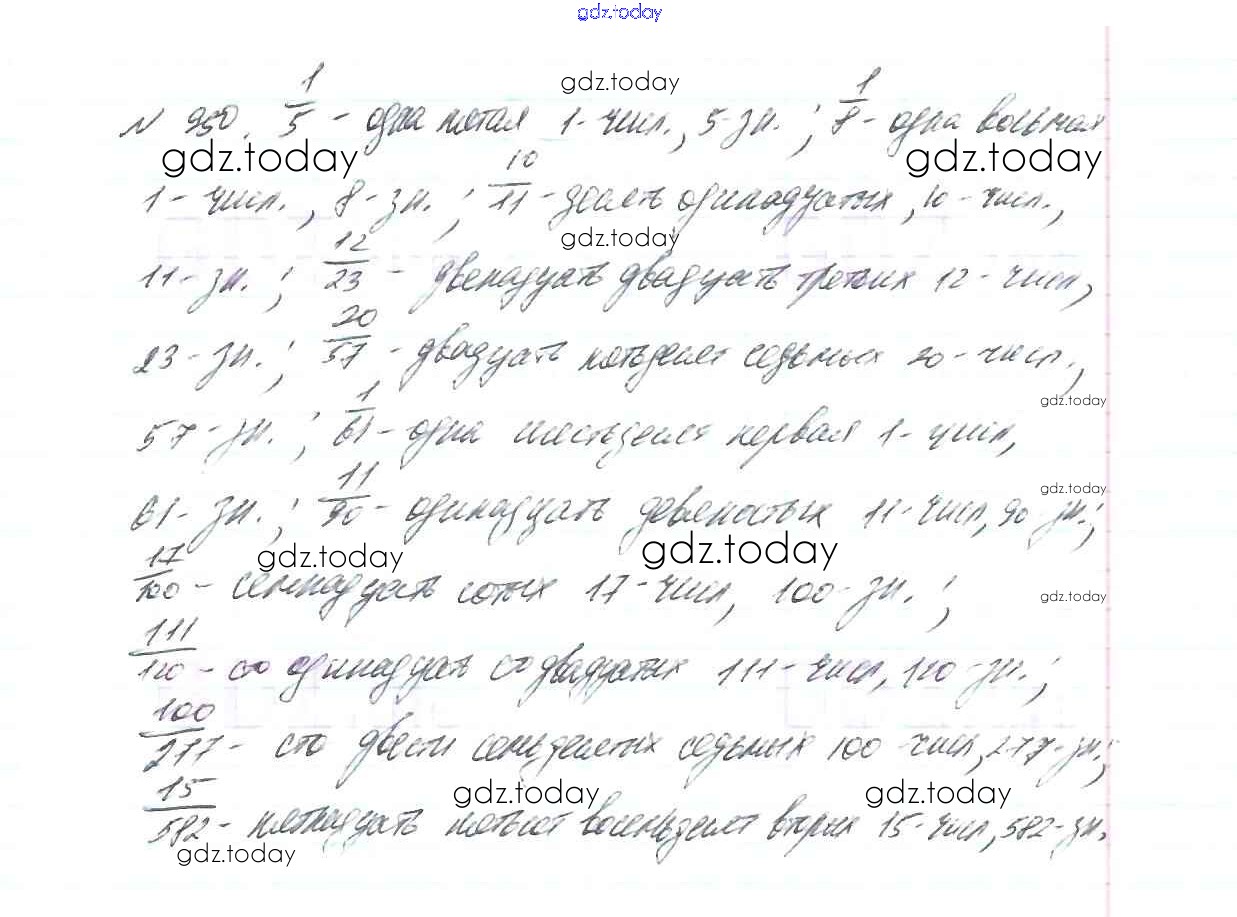 gdz.today
gdz.today
№ 950. 1/5 - одна пятая 1-числ., 5-зн.; 1/8 - одна восьмая
gdz.today gdz.today
1-числ., 8-зн.; 10/11 - десять одинадцатых, 10-числ.,
gdz.today
11-зн.; 12/23 - двенадцать двадцать третьих 12-числ,
23-зн.; 20/57 - двадцать пятьдесят седьмых 20-числ.,
gdz.today
57-зн.; 1/61 - одна шестьдесят первая 1-числ,
gdz.today
61-зн.; 11/90 - одинадцать девяностых 11-числ, 90-зн.;
gdz.today gdz.today
17/100 - семнадцать сотых 17-числ, 100-зн.;
gdz.today
111/120 - сто одинадцать сто двадцатых 111-числ, 120-зн.;
100/277 - сто двести семьдесятых седьмых 100 числ, 277-зн.;
gdz.today gdz.today
15/582 - пятнадцать пятьсот восемьдесят вторых 15-числ, 582-зн.
gdz.today